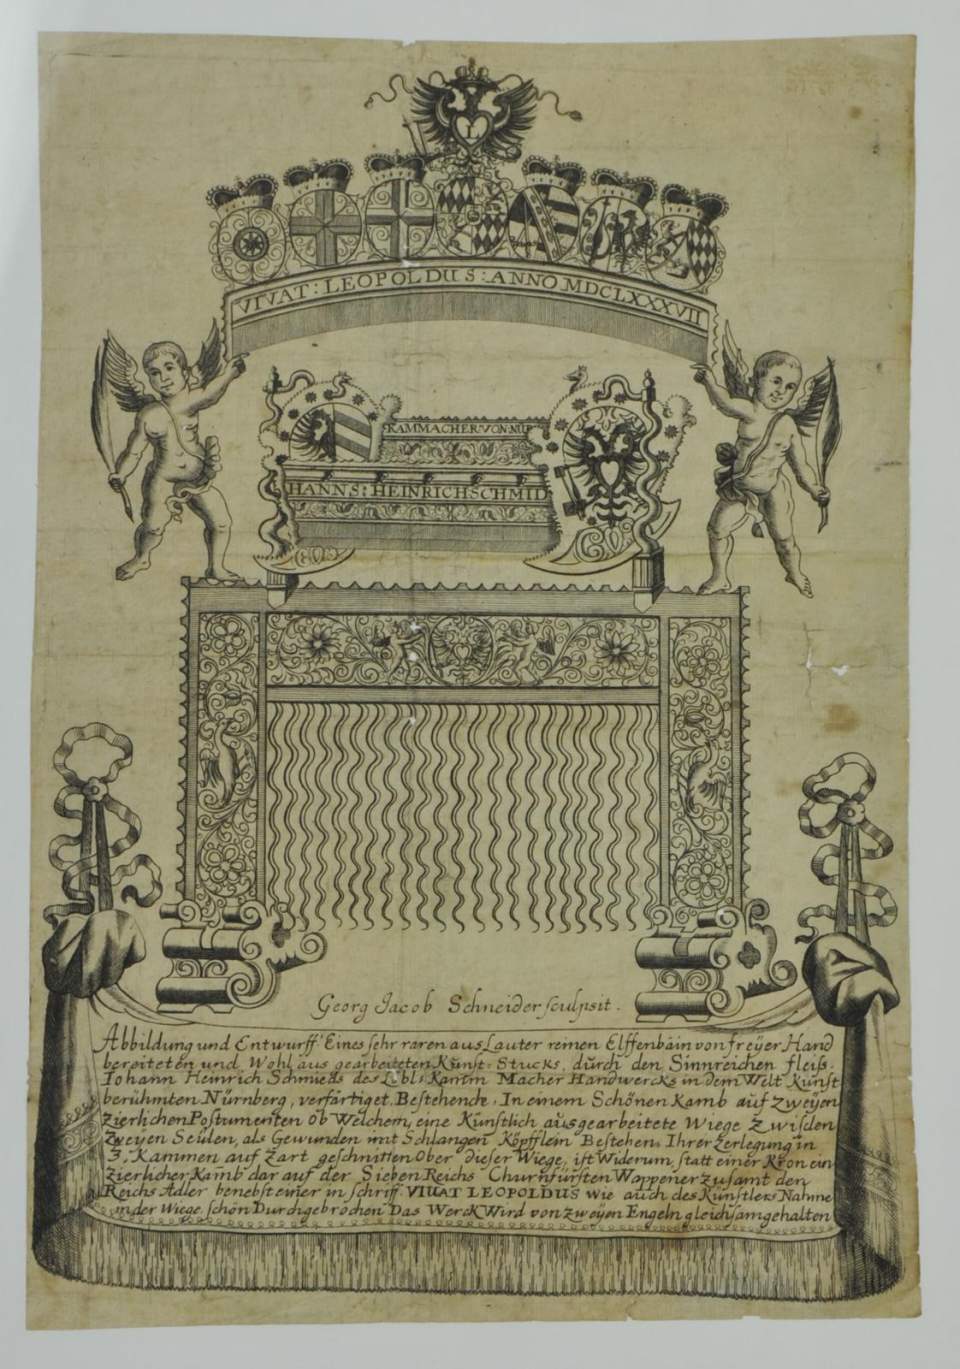 L
VIVAT: LEOPOLDUS: ANNO MDCLXXXVII
KAMMACHER: VON: NUR
HANNS: HEINRICH SCHMID
Georg Jacob Schneider sculpsit.
Abbildung und Entwurff Eines sehr raren aus Lauter reinen Elffenbäin von freÿer Hand
bereiteten und Wohl aus gearbeiteten Kunst-Stucks, durch den Sinnreichen fleiß
Iohann Heinrich Schmieds des Löbl: Kamm Macher Handwercks in dem Welt Kunst
berühmten Nürnberg, verfärtiget. Bestehende, In einem Schönen Kamb auf Zweÿen
zierlichen Postumenten ob Welchem, eine Künstlich ausgearbeitete Wiege Zwisclen
Zweyen Seülen, als Gewunden mit Schlangen Köpfflein Bestehen, Ihrer Zerlegung in
3. Kammen auf Zart geschnitten Ober dieser Wiege, ist Widerum statt einer Kron ein
zierlicher Kamb dar auf der Sieben Reichs Churnfürsten Wappener zusamt den
Reichs Adler benebst einer in schrifft VIUAT LEOPOLDUS wie auch des Kunstlers Nahme
in der Wiege schön Durchgebrochen Das Werck Wird von zweyen Engeln gleichsam gehalten